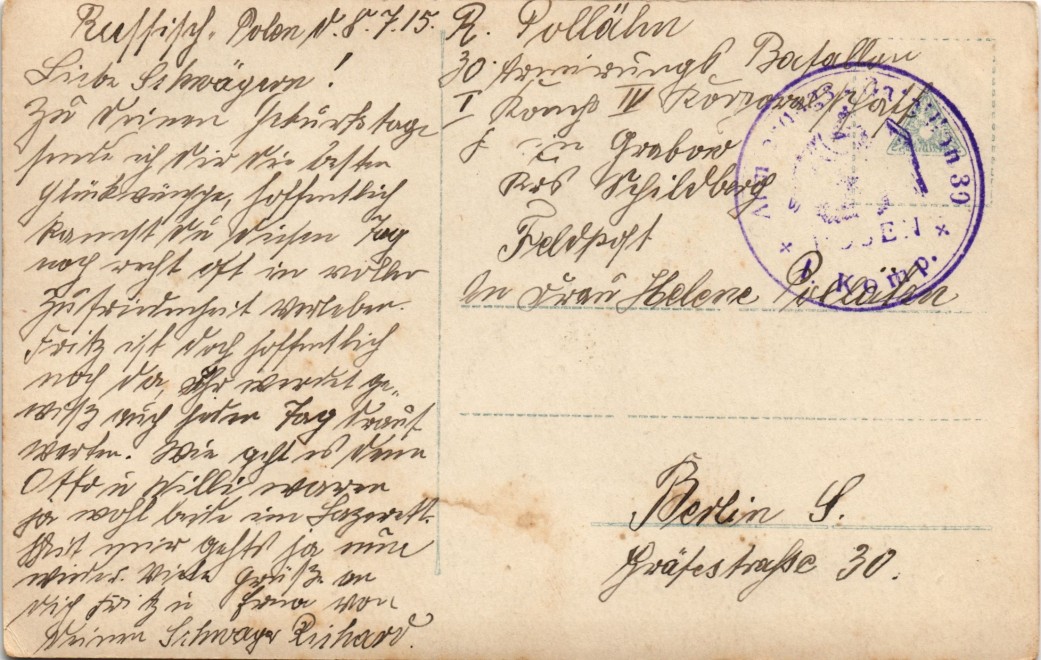 Russisch. Polen d. 8.7.15.
Liebe Schwägern!
Zu Deinen Geburtstage
sende ich dir die besten
Glückwünsche, hoffentlich
kannst du diesen Tag
noch recht oft in voller
Zufriedenheit verleben.
Fritz ist doch hoffentlich
noch da, Ihr werdet ge-
wiß auch jeden Tag drauf
warten. Wie geht es denn
Otto u Willi waren
ja wohl beide im Lazarett.
Mit mir gehts ja nun
wieder. Viele Grüße an
dich Fritz u Erna von
Deinen Schwager Richard.
R. Pollähn
30. Armirungs Batallon
I Komp IV Korporalschaft
in Grabow
Krs Schildberg
Feldpost
An Frau Helene Pollähn
Berlin S.
Gräfestraße 30.
30
POSEN
I. Komp.